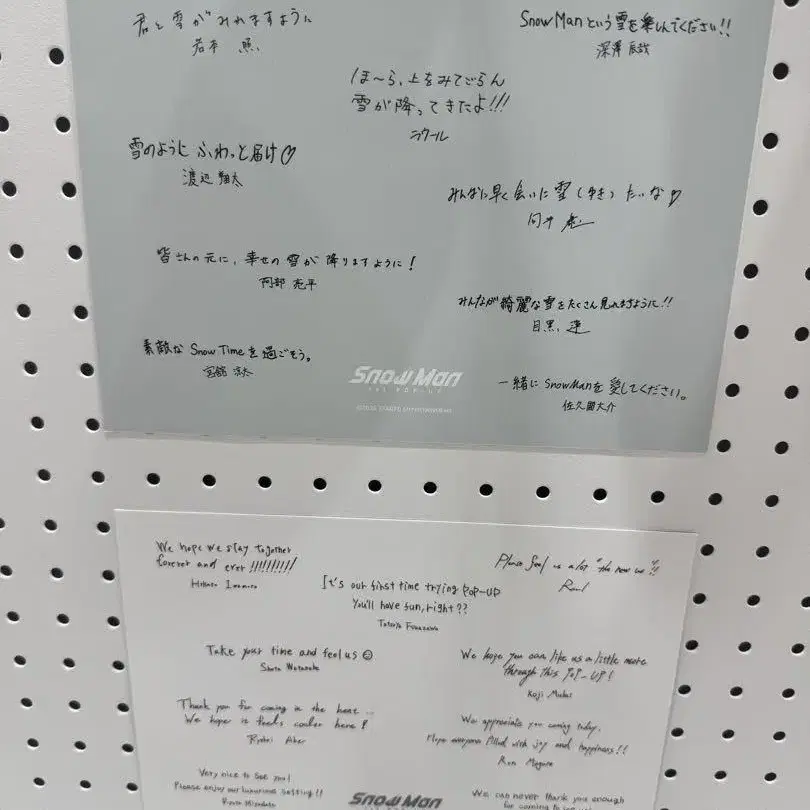 君と雪がみれますように
岩本 照
SnowManという雪を楽しんでください!!
深澤辰哉
ほ〜ら、上をみてごらん
雪が降ってきたよ!!!
ラウール
雪のように ふわっと届け♡
渡辺 翔太
みんなに早く会いに雪(ゆき)たいな♡
向井 康二
皆さんの元に、幸せの雪が降りますように!
阿部 亮平
みんなが綺麗な雪をたくさん見れますように!!
目黒 蓮
素敵な Snow Timeを過ごそう。
宮舘 涼太
Snow Man
一緒に SnowManを愛してください。
佐久間大介
We hope we stay together
forever and ever !!!!!!!!!!
Hikaru Iwamoto
Please feel us a lot "the new us"!!
Raul
It's our first time trying POP-UP
You'll have fun, right??
Tatsuya Fukazawa
Take your time and feel us ☺
Shota Watanabe
We hope you can like us a little more
through this POP-UP!
Koji Mukai
Thank you for coming in the heat...
We hope it feels cooler here!
Ryohei Abe
We appreciate you coming today.
Hope everyone filled with joy and happiness!!
Ren Meguro
Very nice to see you!
Please enjoy our luxurious setting!!
Ryota Miyadate
Snow Man
We can never thank you enough
for coming to see us